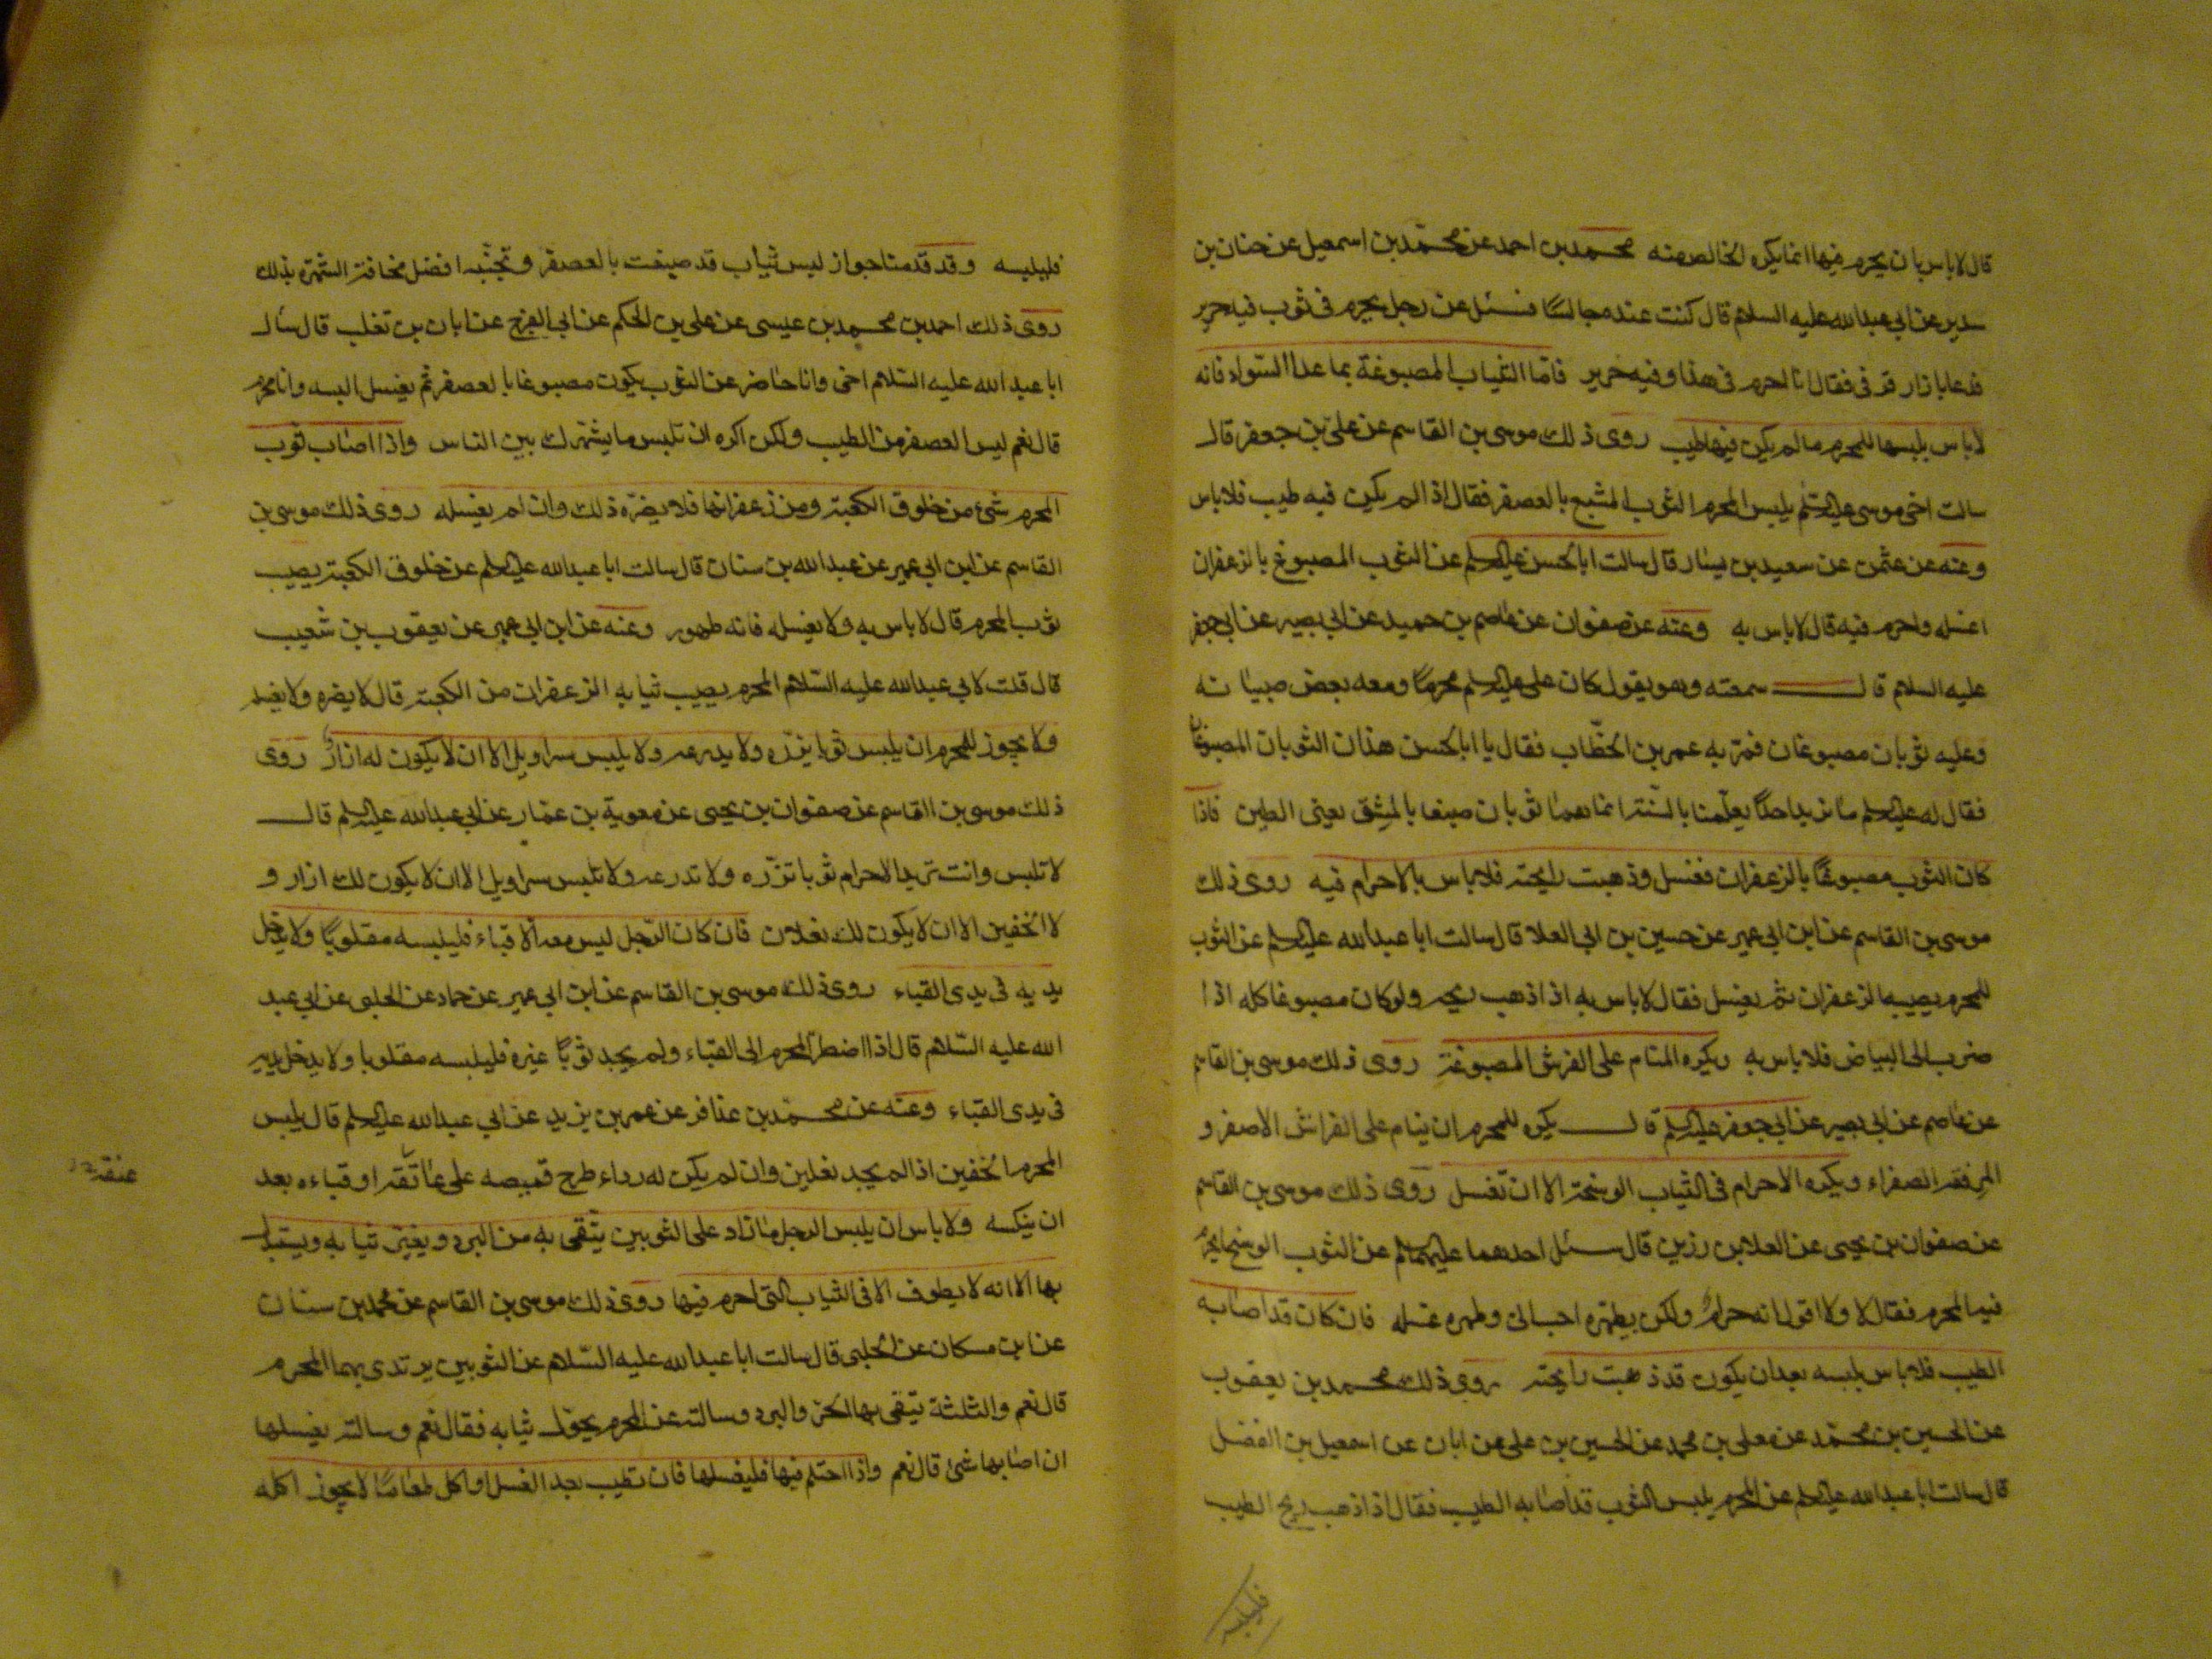 قال لا باس بان يحرم فيها انما يكره الخالص منه محمد بن احمد عن محمد بن اسمعيل عن حنان بن
سدير عن ابي عبد الله عليه السلام قال كنت عنده جالسًا فسئل عن رجل يحرم في ثوب فيه حرير
فدعا بازار قرقبي فقال انا احرم في هذا وفيه حرير فامّا الثياب المصبوغة بما عدا السواد فانه
لا باس بلبسها للمحرم ما لم يكن فيها طيب روى ذلك موسى بن القاسم عن علي بن جعفر قال
سالت اخي موسى عليه السلم يلبس المحرم الثوب المشبع بالعصفر فقال اذا لم يكن فيه طيب فلا باس
وعنه عن عثمن عن سعيد بن يسار قال سالت ابا الحسن عليه السلم عن الثوب المصبوغ بالزعفران
اغسله واحرم فيه قال لا باس به وعنه عن صفوان عن عاصم بن حميد عن ابي بصير عن ابي جعفر
عليه السلام قال سمعته وهو يقول كان علي عليه السلم محرمًا ومعه بعض صبيانه
وعليه ثوبان مصبوغان فمر به عمر بن الخطّاب فقال يا ابا الحسن هذان الثوبان المصبوغان
فقال له عليه السلم ما نريد احدًا يعلّمنا بالسّنة انما هما ثوبان صبغا بالمشق يعني الطين فاذا
كان الثوب مصبوغًا بالزعفران فغسل وذهبت رايحته فلا باس بالاحرام فيه روى ذلك
موسى بن القاسم عن ابن ابي عمير عن حسين بن ابي العلا قال سالت ابا عبد الله عليه السلم عن الثوب
للمحرم يصيبه الزعفران ثم يغسل فقال لا باس به اذا ذهب ريحه ولو كان مصبوغا كله اذا
ضرب الى البياض فلا باس به ويكره المنام على الفرش المصبوغة روى ذلك موسى بن القاسم
عن عاصم عن ابي بصير عن ابي جعفر عليه السلم قال يكره للمحرم ان ينام على الفراش الاصفر و
المرفقه الصفراء ويكره الاحرام في الثياب الوسخة الا ان تغسل روى ذلك موسى بن القاسم
عن صفوان بن يحيى عن العلا بن رزين قال سئل احدهما عليهما السلم عن الثوب الوسخ ايحرم
فيه المحرم فقال لا ولا اقول انه حرام ولكن يطهّره احب الي وطهره غسله فان كان قد اصابه
الطيب فلا باس بلبسه بعد ان يكون قد ذهبت رايحته روى ذلك محمد بن يعقوب
عن الحسين بن محمّد عن معلى بن محمد عن الحسين بن علي عن ابان عن اسمعيل بن الفضل
قال سالت ابا عبد الله عليه السلم عن المحرم يلبس الثوب قد اصابه الطيب فقال اذا ذهب ريح الطيب
فليلبسه
فليلبسه وقد قدمنا جواز لبس ثياب قد صبغت بالعصفر وتجنّبه افضل مخافة الشهرة بذلك
روى ذلك احمد بن محمد بن عيسى عن علي بن الحكم عن ابي الفرج عن ابان بن تغلب قال سال
ابا عبد الله عليه السّلام اخي وانا حاضر عن الثوب يكون مصبوغا بالعصفر ثم يغسل البسه وانا محرم
قال نعم ليس العصفر من الطيب ولكن اكره ان تلبس ما يشهرك بين الناس واذا اصاب ثوب
المحرم شئ من خلوق الكعبة ومن زعفرانها فلا يضرّه ذلك وان لم يغسله روى ذلك موسى بن
القاسم عن ابن ابي عمير عن عبد الله بن سنان قال سالت ابا عبد الله عليه السلم عن خلوق الكعبة يصيب
ثوب المحرم قال لا باس به ولا يغسله فانه طهور وعنه عن ابن ابي عمير عن يعقوب بن شعيب
قال قلت لابي عبد الله عليه السّلام المحرم يصيب ثيابه الزعفران من الكعبة قال لا يضره ولا يغسله
ولا يجوز للمحرم ان يلبس ثوبا يزرّه ولا يدرعه ولا يلبس سراويل الا ان لا يكون له ازار روى
ذلك موسى بن القاسم عن صفوان بن يحيى عن معوية بن عمّار عن ابي عبد الله عليه السلم قال
لا تلبس وانت تريد الاحرام ثوبا تزرّه ولا تدرعه ولا تلبس سراويل الا ان لا يكون لك ازار و
لا الخفين الا ان لا يكون لك نعلان فان كان الرّجل ليس معه الا قباء فليلبسه مقلوبًا ولا يدخل
يديه في يدي القباء روى ذلك موسى بن القاسم عن ابن ابي عمير عن حماد عن الحلبي عن ابي عبد
الله عليه السّلام قال اذا اضطر المحرم الى القباء ولم يجد ثوبًا غيره فليلبسه مقلوبا ولا يدخل يديه
في يدي القباء وعنه عن محمّد بن عذافر عن عمر بن يزيد عن ابي عبد الله عليه السلم قال يلبس
المحرم الخفين اذا لم يجد نعلين وان لم يكن له رداء طرح قميصه على عاتقه او قباءه بعد
عنقه
ان ينكسه ولا باس ان يلبس الرجل ما زاد على الثوبين يتّقى به من البرد ويغيّر ثيابه ويستبدل
بها الا انه لا يطوف الا في الثياب التي احرم فيها روى ذلك موسى بن القاسم عن محمد بن سنان
عن ابن مسكان عن الحلبي قال سالت ابا عبد الله عليه السّلام عن الثوبين يرتدى بهما المحرم
قال نعم والثلثة يتقى بها الحر والبرد وسالته عن المحرم يحوّل ثيابه فقال نعم وسالته يغسلها
ان اصابها شئ قال نعم واذا احتلم فيها فليغسلها فان تطيب بعد الغسل او اكل طعامًا لا يجوز اكله